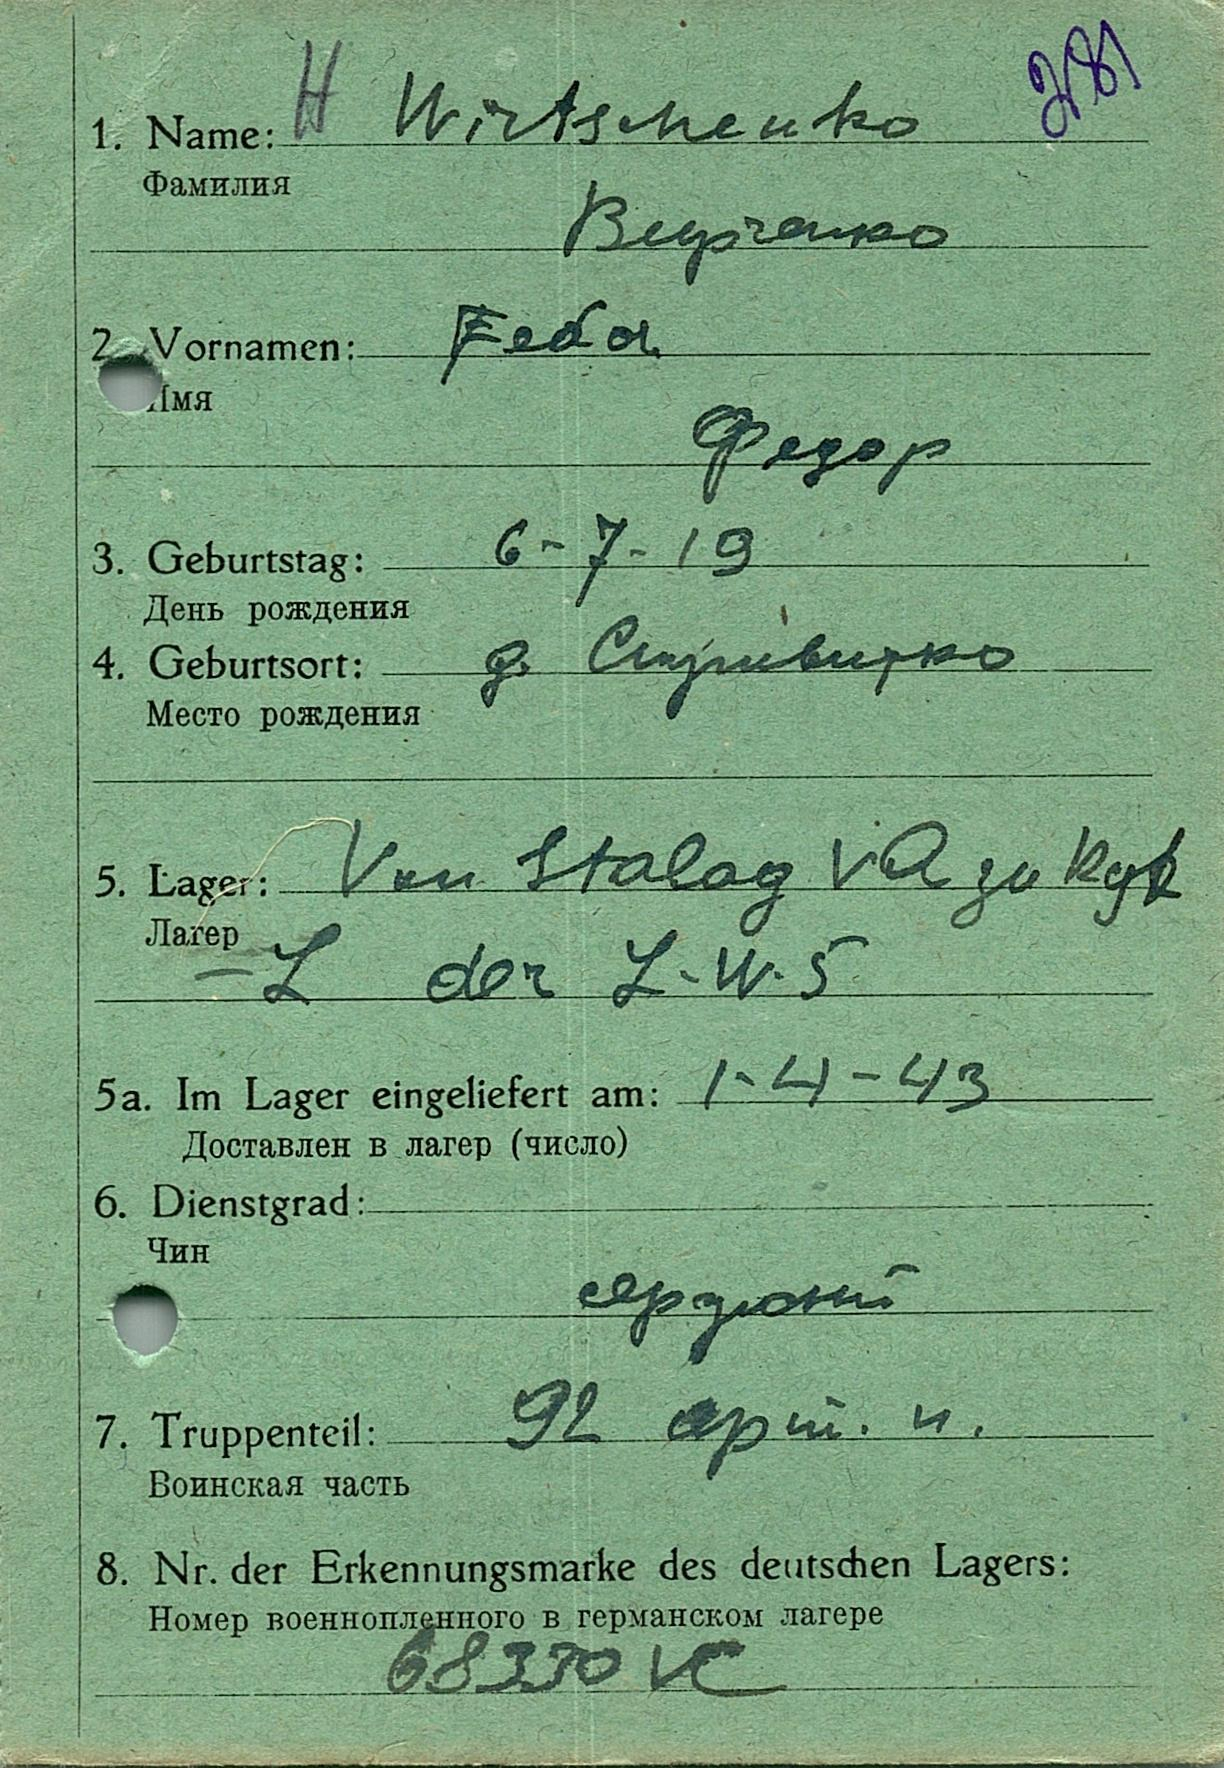 H Wirtschenko
1. Name:
Фамилия
2. Vornamen: Fedor
Имя
Федор
3. Geburtstag: 6-7-19
День рождения
4. Geburtsort: д.
Место рождения
5. Lager: Von Stalag VA zu
Лагер
-L der L-W. 5
5a. Im Lager eingeliefert am: 1-4-43
Доставлен в лагер (число)
6. Dienstgrad:
Чин
сержант
7. Truppenteil: 92 арт. п.
Воинская часть
8. Nr. der Erkennungsmarke des deutschen Lagers:
Номер военнопленного в германском лагере
68330 VC